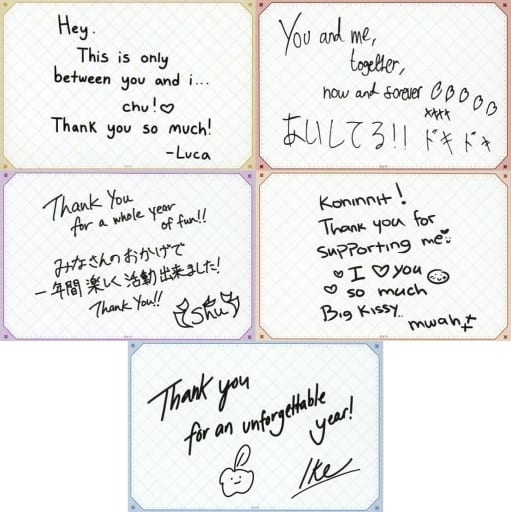 Hey.
This is only
between you and i...
chu!♡
Thank you so much!
-Luca
You and me,
together,
now and forever
xxxx
あいしてる!! ドキドキ
Thank You
for a whole year
of fun!!
みなさんのおかげで
一年間楽しく活動出来ました!
Thank You!!
Shu
Koninnit!
Thank you for
supporting me
I ♡ you
so much
Big Kissy..
mwah
Thank you
for an unforgettable
year!
Ike